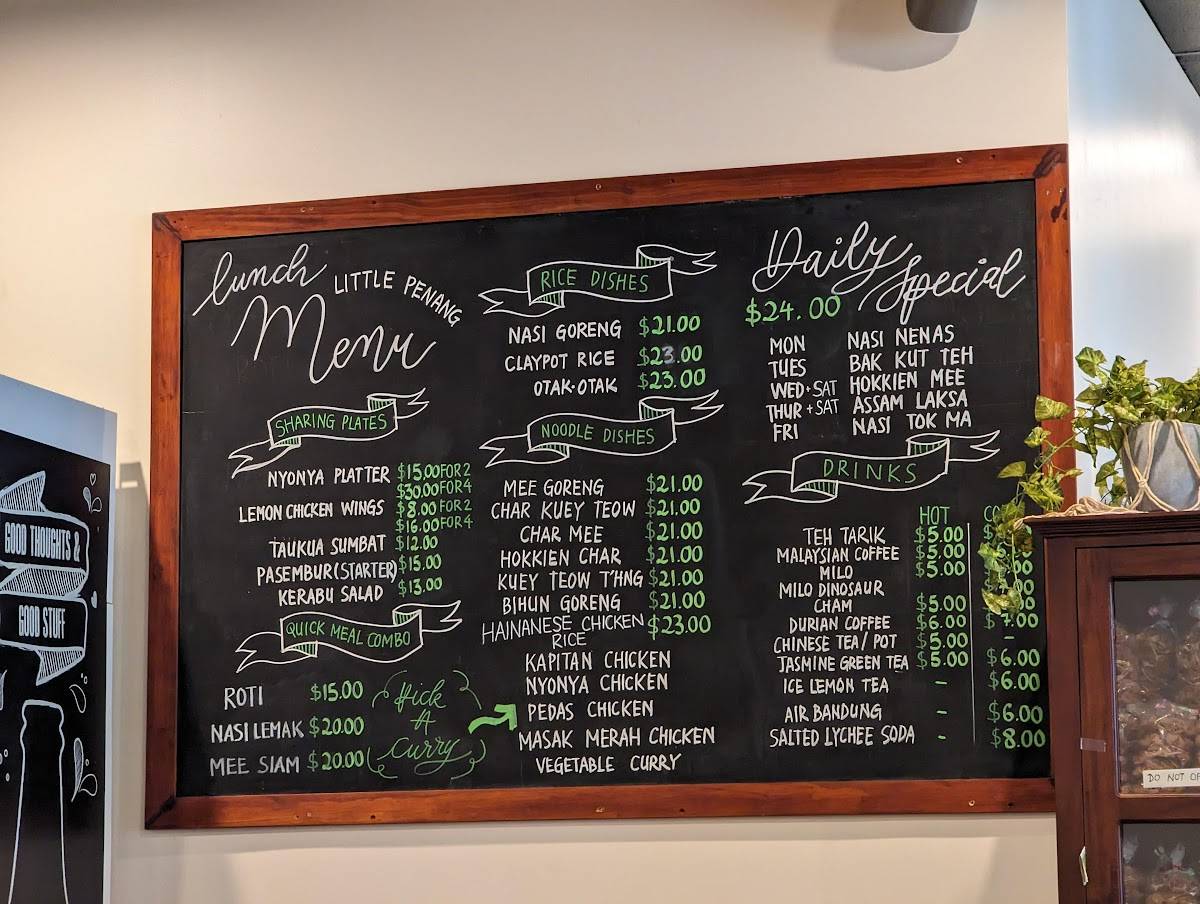 lunch
LITTLE PENANG
Menu
SHARING PLATES
NYONYA PLATTER $15.00 FOR 2
$30.00 FOR 4
LEMON CHICKEN WINGS $8.00 FOR 2
$16.00 FOR 4
TAUKUA SUMBAT $12.00
PASEMBUR (STARTER) $15.00
KERABU SALAD $13.00
QUICK MEAL COMBO
ROTI $15.00
NASI LEMAK $20.00
MEE SIAM $20.00
Pick
A
Curry
RICE DISHES
NASI GORENG $21.00
CLAYPOT RICE $23.00
OTAK-OTAK $23.00
NOODLE DISHES
MEE GORENG $21.00
CHAR KUEY TEOW $21.00
CHAR MEE $21.00
HOKKIEN CHAR $21.00
KUEY TEOW T'HNG $21.00
BIHUN GORENG $21.00
HAINANESE CHICKEN $23.00
RICE
KAPITAN CHICKEN
NYONYA CHICKEN
PEDAS CHICKEN
MASAK MERAH CHICKEN
VEGETABLE CURRY
Daily
Special
$24.00
MON NASI NENAS
TUES BAK KUT TEH
WED + SAT HOKKIEN MEE
THUR + SAT ASSAM LAKSA
FRI NASI TOK MA
DRINKS
HOT
TEH TARIK $5.00
MALAYSIAN COFFEE $5.00
MILO $5.00
MILO DINOSAUR
CHAM $5.00
DURIAN COFFEE $6.00 $7.00
CHINESE TEA / POT $5.00 -
JASMINE GREEN TEA $5.00 $6.00
ICE LEMON TEA - $6.00
AIR BANDUNG - $6.00
SALTED LYCHEE SODA - $8.00
GOOD THOUGHTS &
GOOD STUFF
DO NOT